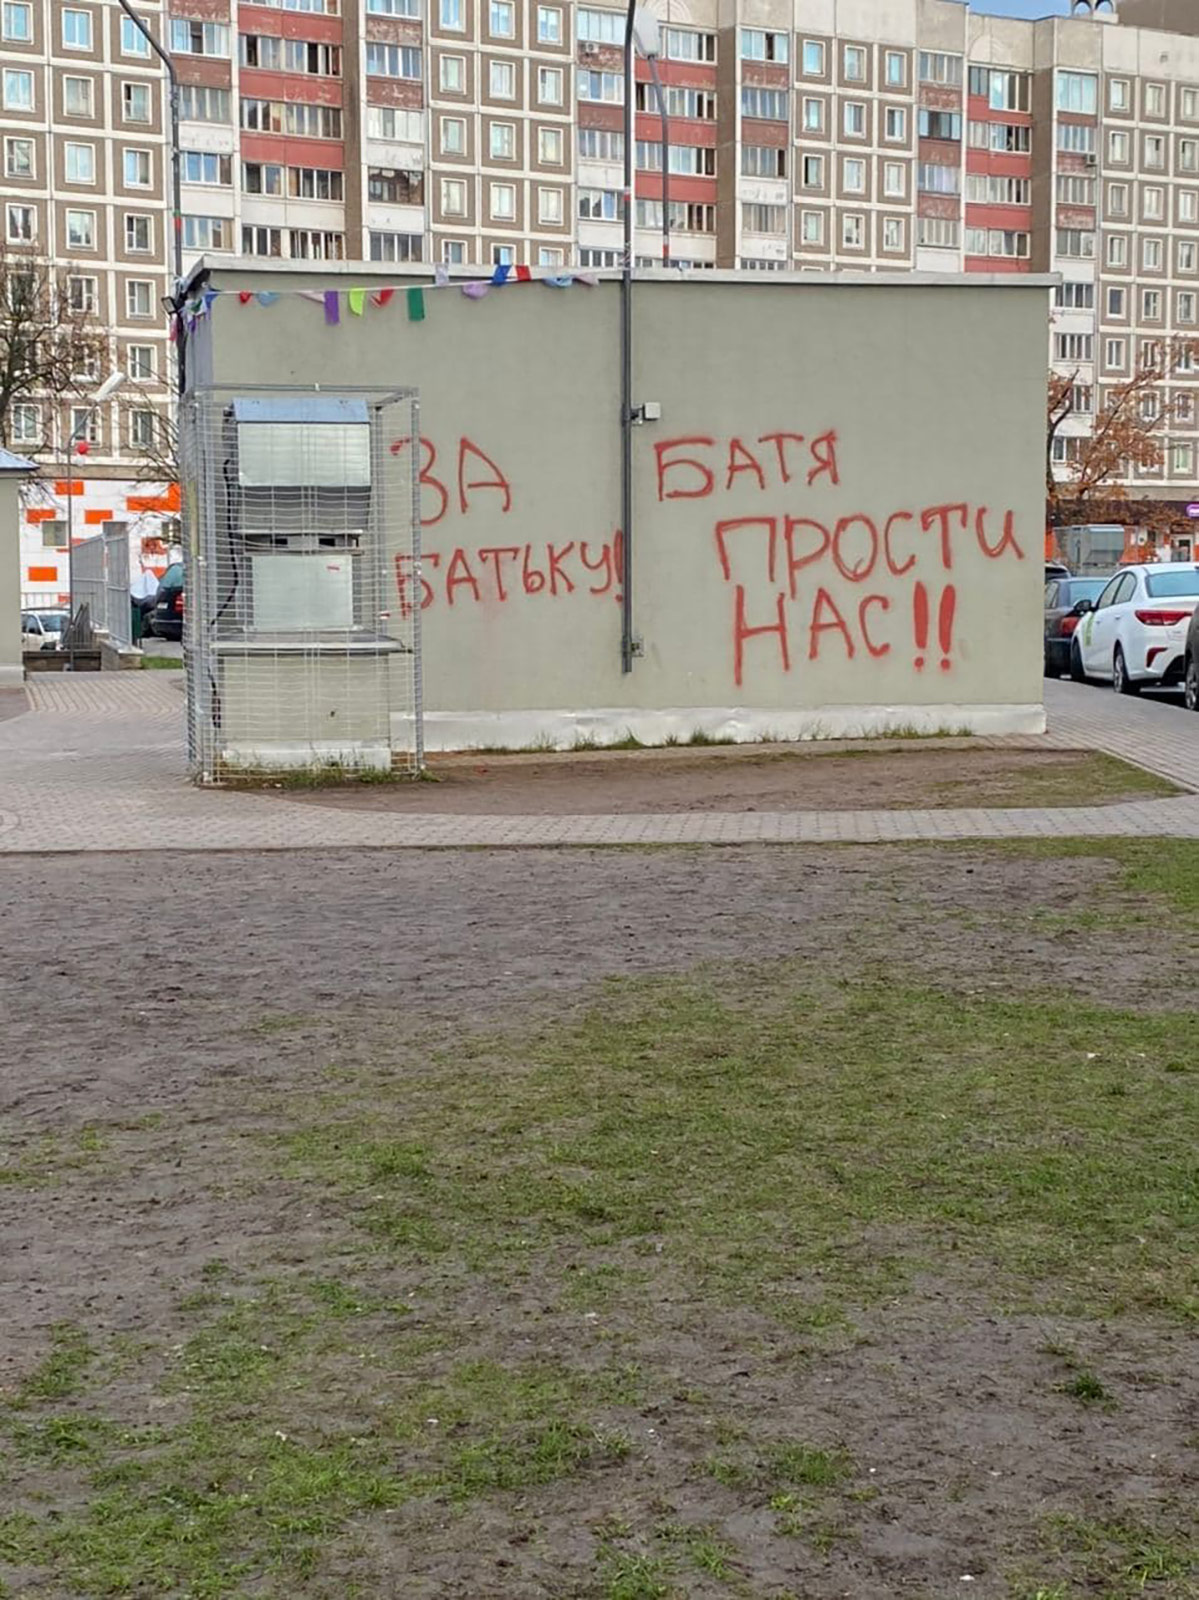 ЗА
БАТЬКУ!
БАТЯ
ПРОСТИ
НАС!!